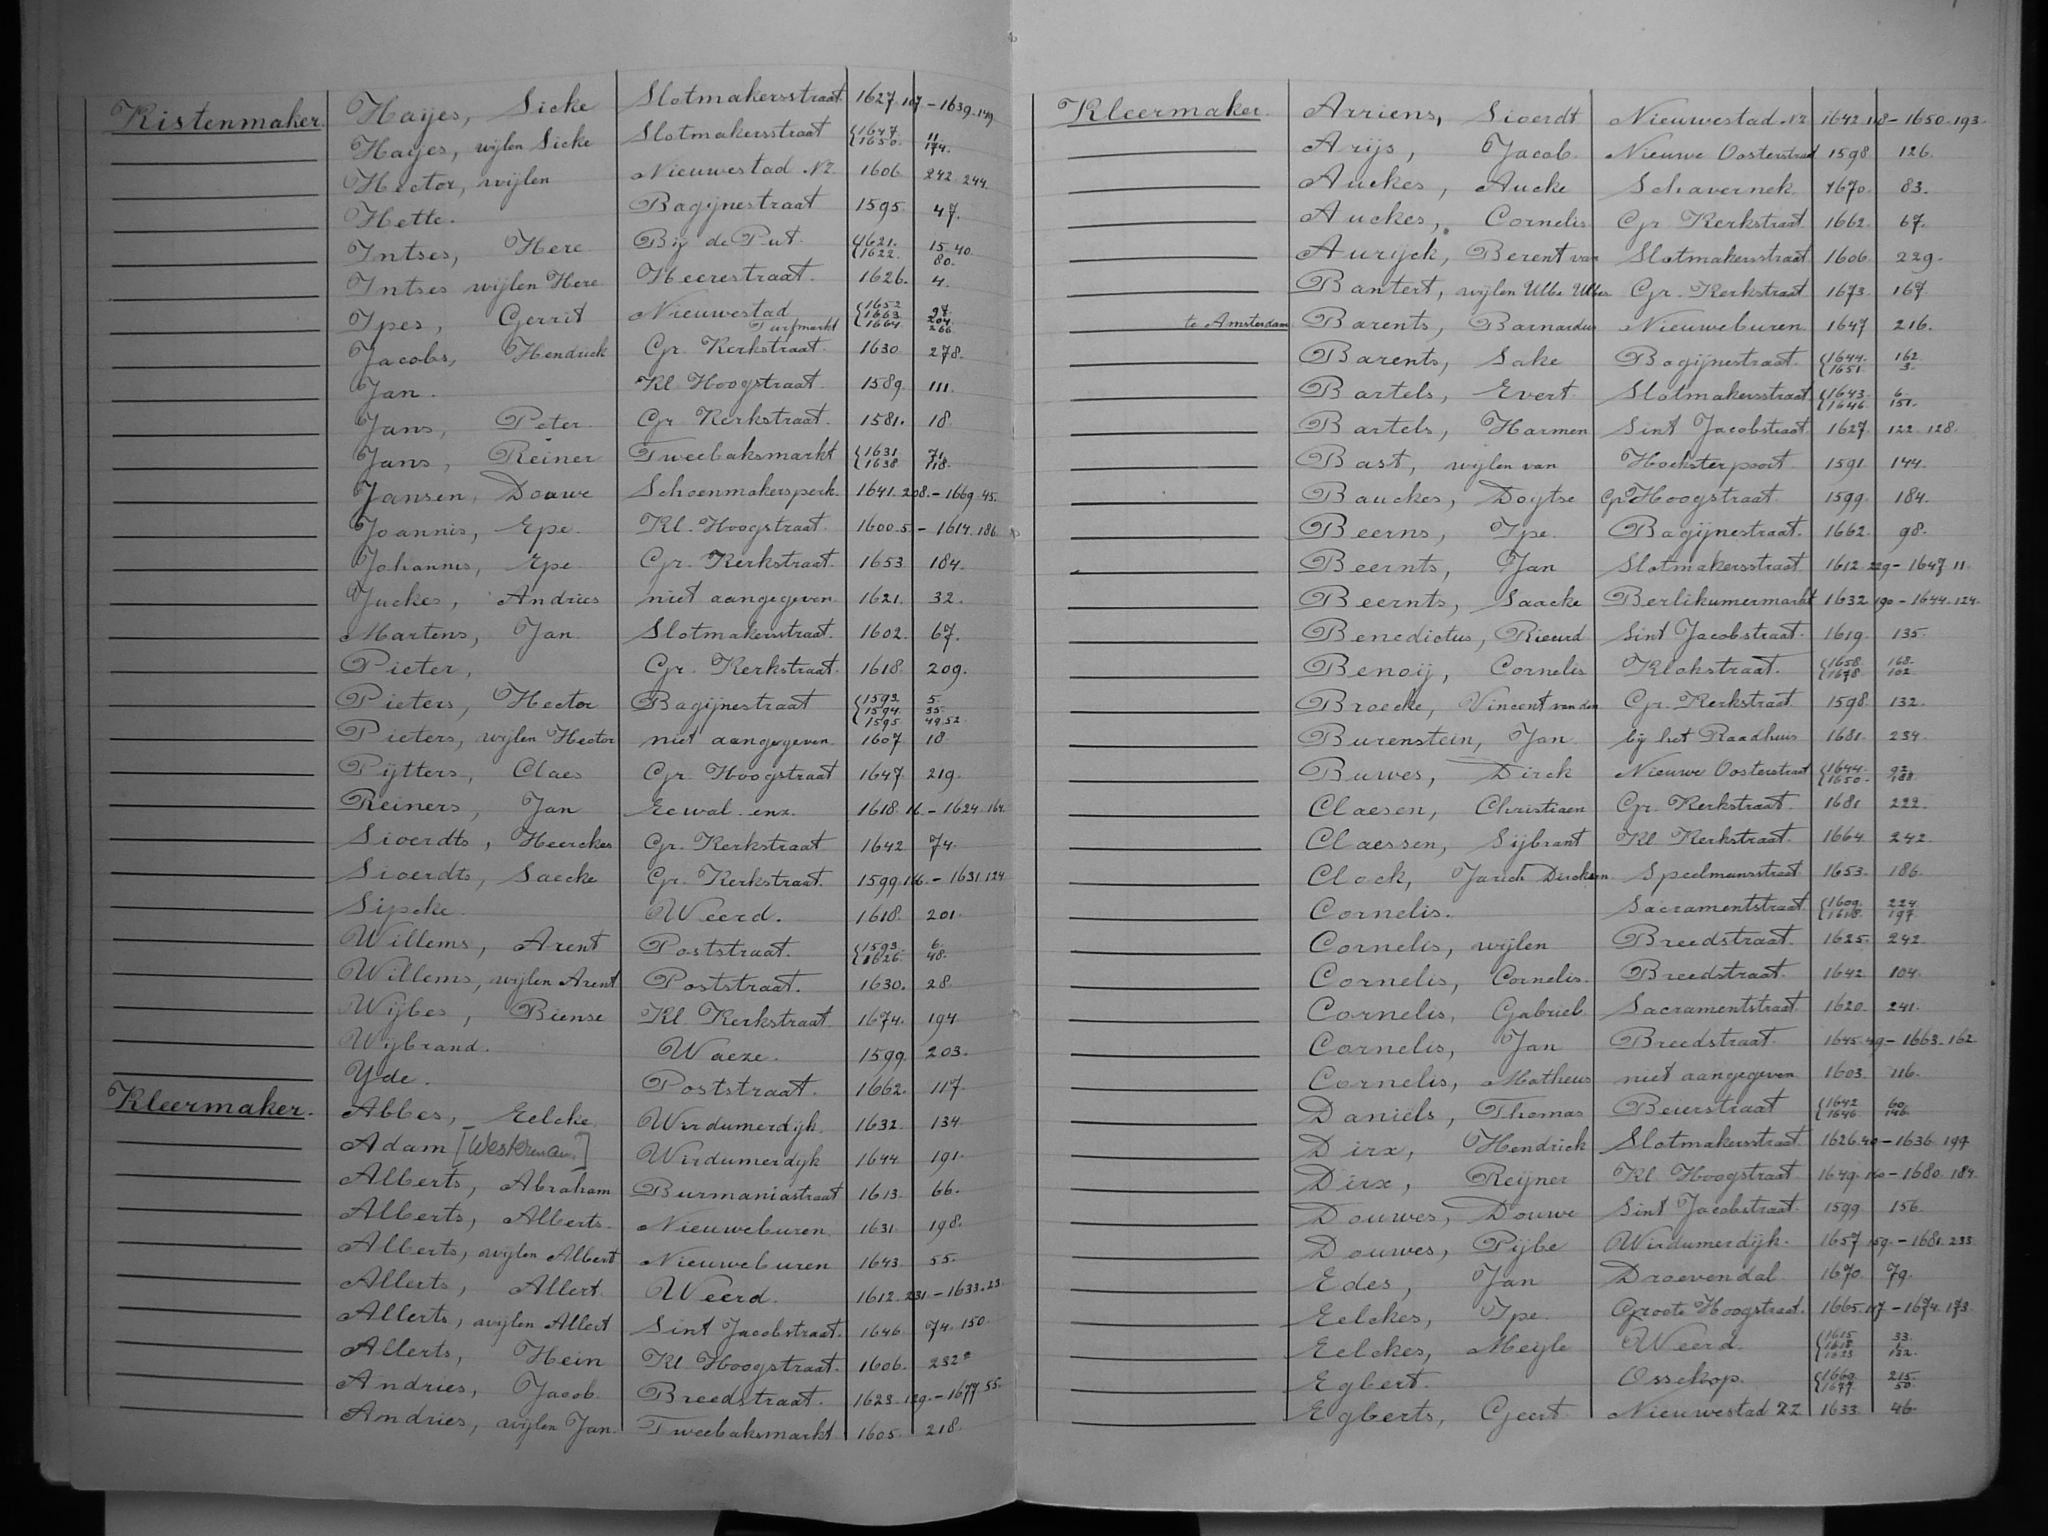 Kistenmaker. Hayes, Sicke Slotmakersstraat 1627.107 – 1639.149
Hayes, wijlen Sicke Slotmakersstraat {1647. 11. {1650. 174.
Hector, wijlen Nieuwestad NZ. 1606 242 244.
Hette. Bagijnestraat 1595. 47.
Intses, Here Bij de Put. {1621. 15. 40 {1622. 80.
Intses wijlen Here Heerestraat. 1626. 4.
Ipes, Gerrit Nieuwestad Turfmarkt {1652 97. {1663 204 {1664. 266
Jacobs, Hendrick Gr. Kerkstraat. 1630. 278.
Jan. Kl. Hoogstraat. 1589. 111.
Jans, Peter. Gr. Kerkstraat. 1581. 18.
Jans, Reiner Tweebaksmarkt {1631 71. {1638 118.
Jansen, Douwe Schoenmakersperk. 1641. 208. – 1669. 45.
Joannis, Epe. Kl. Hoogstraat. 1600.5 – 1614.186
Johannis, Epe Gr. Kerkstraat. 1653. 184.
Juckes, Andries niet aangegeven. 1621. 32.
Martens, Jan Slotmakersstraat. 1602. 67.
Pieter, Gr. Kerkstraat. 1618. 209.
Pieters, Hector Bagijnestraat {1593. 5. {1594. 35. {1595. 49.52.
Pieters, wijlen Hector niet aangegeven. 1607 18.
Pijtters, Claes Gr. Hoogstraat 1647. 219.
Reiners, Jan Eewal. enz. 1618. 16. – 1624.164.
Sioerdts, Heerckes Gr. Kerkstraat 1642 74.
Sioerdts, Saecke Gr. Kerkstraat. 1599.166. – 1631.124
Sipcke. Weerd. 1618. 201.
Willems, Arent Poststraat. {1593. 6. {1626. 48.
Willems, wijlen Arent Poststraat. 1630. 28.
Wijbes, Biense Kl. Kerkstraat. 1674. 194.
Wijbrand. Waeze. 1599. 203.
Yde. Poststraat. 1662. 117.
Kleermaker. Abbes, Eelcke. Wirdumerdijk. 1632. 134.
Adam [Westerman.] Wirdumerdijk 1644. 191.
Alberts, Abraham Burmaniastraat 1613. 66.
Alberts, Alberts. Nieuweburen. 1631. 198.
Alberts, wijlen Albert Nieuweburen 1643. 55.
Allerts, Allert. Weerd. 1612. 231. – 1633.23.
Allerts, wijlen Allert Sint Jacobstraat. 1646. 74. 150.
Allerts, Hein Kl. Hoogstraat. 1606. 232ᵃ
Andries, Jacob. Breedstraat. 1623.129. – 1677.55.
Andries, wijlen Jan. Tweebaksmarkt. 1605. 218.
Kleermaker. Arriens, Sioerdt Nieuwestad. NZ 1642.118 – 1650.193.
Arijs, Jacob. Nieuwe Oosterstraat 1598. 126.
Auckes, Aucke Schavernek. 1670. 83.
Auckes, Cornelis. Gr. Kerkstraat. 1662. 67.
Aurijck, Berent van Slotmakersstraat. 1606. 229.
Bantert, wijlen Ulbe Ulbes Gr. Kerkstraat 1673. 167.
te Amsterdam. Barents, Barnardus Nieuweburen. 1647 216.
Barents, Sake Bagijnestraat. {1644. 162 {1651. 3.
Bartels, Evert. Slotmakersstraat. {1643. 6. {1646. 151.
Bartels, Harmen Sint Jacobstraat. 1627. 122. 128.
Bast, wijlen van Hoeksterpoort. 1591. 144.
Bauckes, Doytse Gr. Hoogstraat. 1599. 184.
Beerns, Ipe. Bagijnestraat. 1662. 98.
Beernts, Jan Slotmakersstraat. 1612. 229 – 1647 11.
Beernts, Saacke Berlikumermarkt 1632.190 – 1644.124.
Benedictus, Rieurd. Sint Jacobstraat. 1619. 135.
Benoij, Cornelis Klokstraat. {1658. 168. {1678. 102.
Broecke, Vincent van den Gr. Kerkstraat. 1598. 132.
Burenstein, Jan. bij het Raadhuis 1681. 234.
Buwes, Dirck Nieuwe Oosterstraat {1644. 92. {1650. 188.
Claesen, Christiaen Gr. Kerkstraat. 1681 222.
Claessen, Sijbrant Kl. Kerkstraat. 1664. 242.
Clock, Jarich Dircksen. Speelmansstraat 1653. 186.
Cornelis. Sacramentstraat. {1609. 224 {1618. 197.
Cornelis, wijlen Breedstraat. 1625. 242.
Cornelis, Cornelis. Breedstraat. 1642 104.
Cornelis, Gabriel. Sacramentstraat. 1620. 241.
Cornelis, Jan Breedstraat. 1645.49 – 1663.162
Cornelis, Matheus niet aangegeven 1603. 116.
Daniëls, Thomas Beierstraat {1642 60. {1646. 146.
Dirx, Hendrick Slotmakersstraat. 1626.40 – 1636.197
Dirx, Reijner Kl. Hoogstraat. 1649.160 – 1680.184.
Douwes, Douwe Sint Jacobstraat. 1599. 156.
Douwes, Pijbe Wirdumerdijk. 1657 159. – 1681.233.
Edes, Jan Droevendal. 1670. 79.
Eelckes, Ipe. Groote Hoogstraat. 1665.117 – 1674.173.
Eelckes, Meyle Weerd. {1615 33. {1618 1. {1623 132.
Egbert. Ossekop. {1660. 215. {1677. 50.
Egberts, Geert. Nieuwestad ZZ 1633. 46.